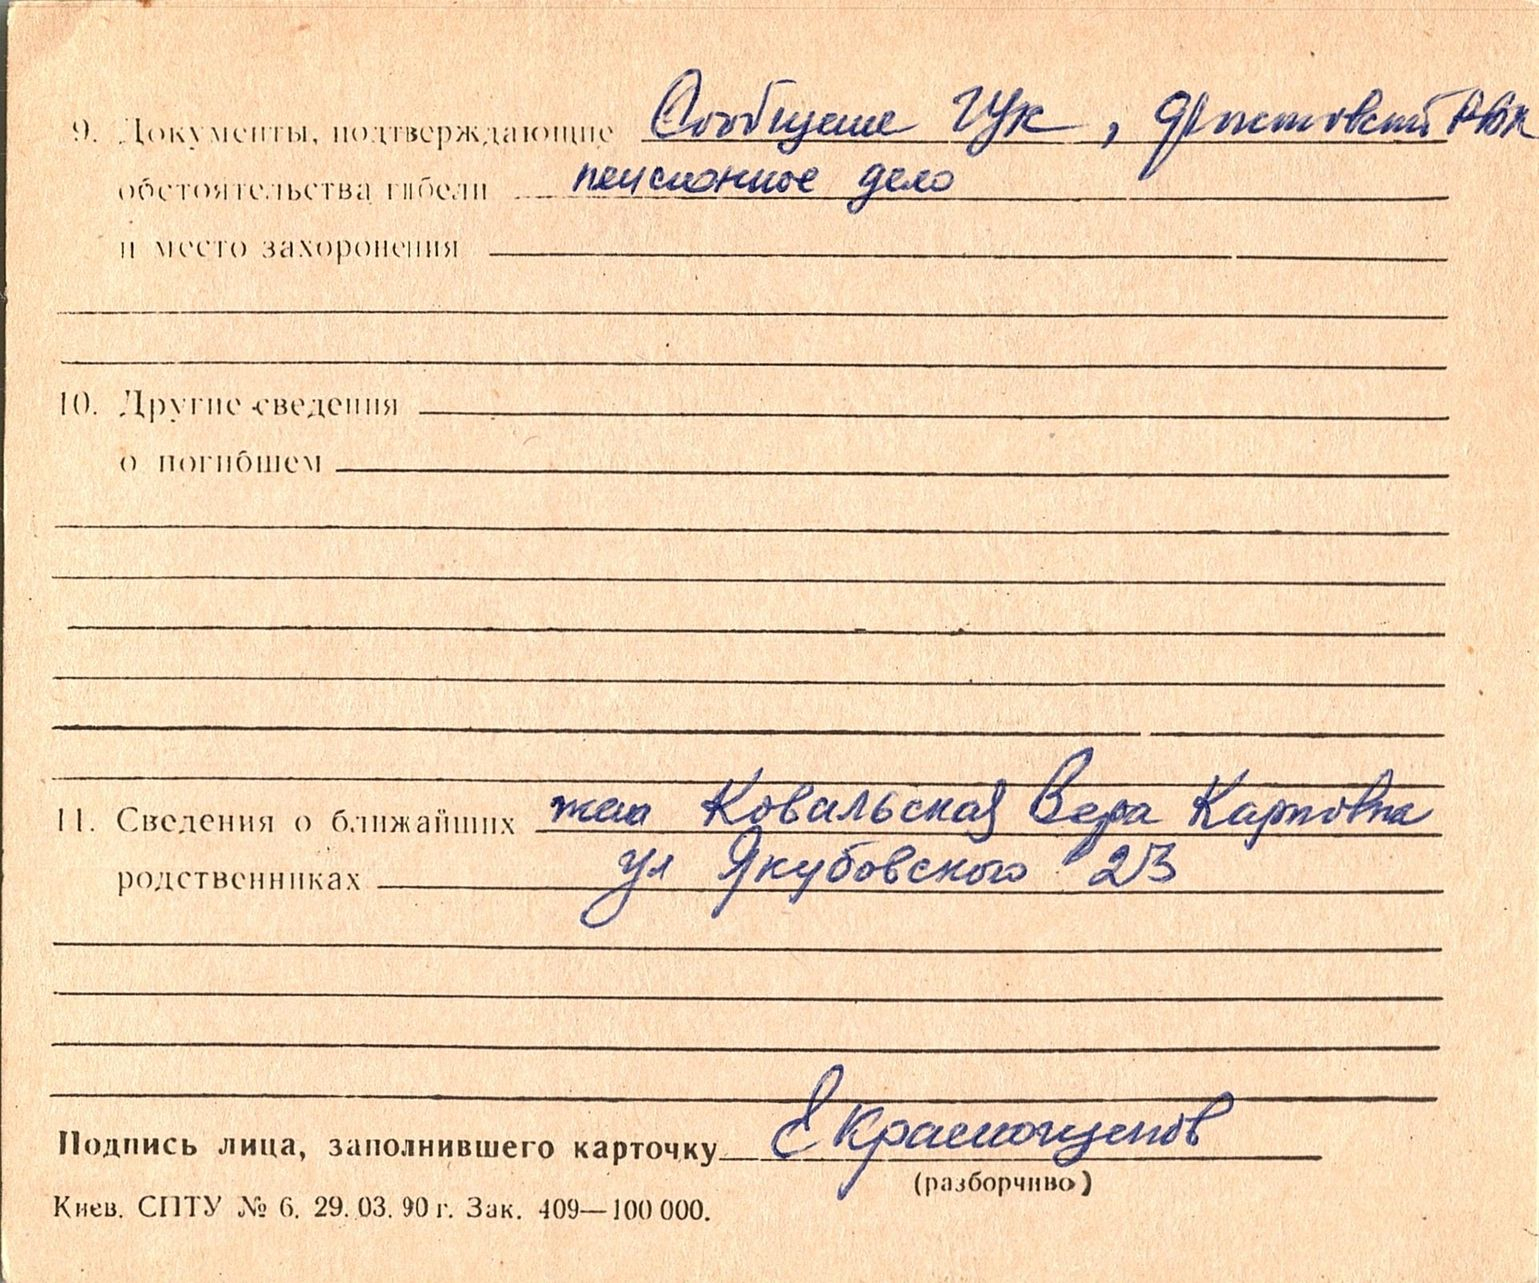 9. Документы, подтверждающие Сообщение ГУК, РВК
обстоятельства гибели пенсионное дело
и место захоронения
10. Другие сведения
о погибшем
11. Сведения о ближайших жена Ковальская Вера Карповна
родственниках ул Якубовского 23
Подпись лица, заполнившего карточку Е Краснощепов
(разборчиво)
Киев. СПТУ № 6. 29. 03. 90 г. Зак. 409—100 000.